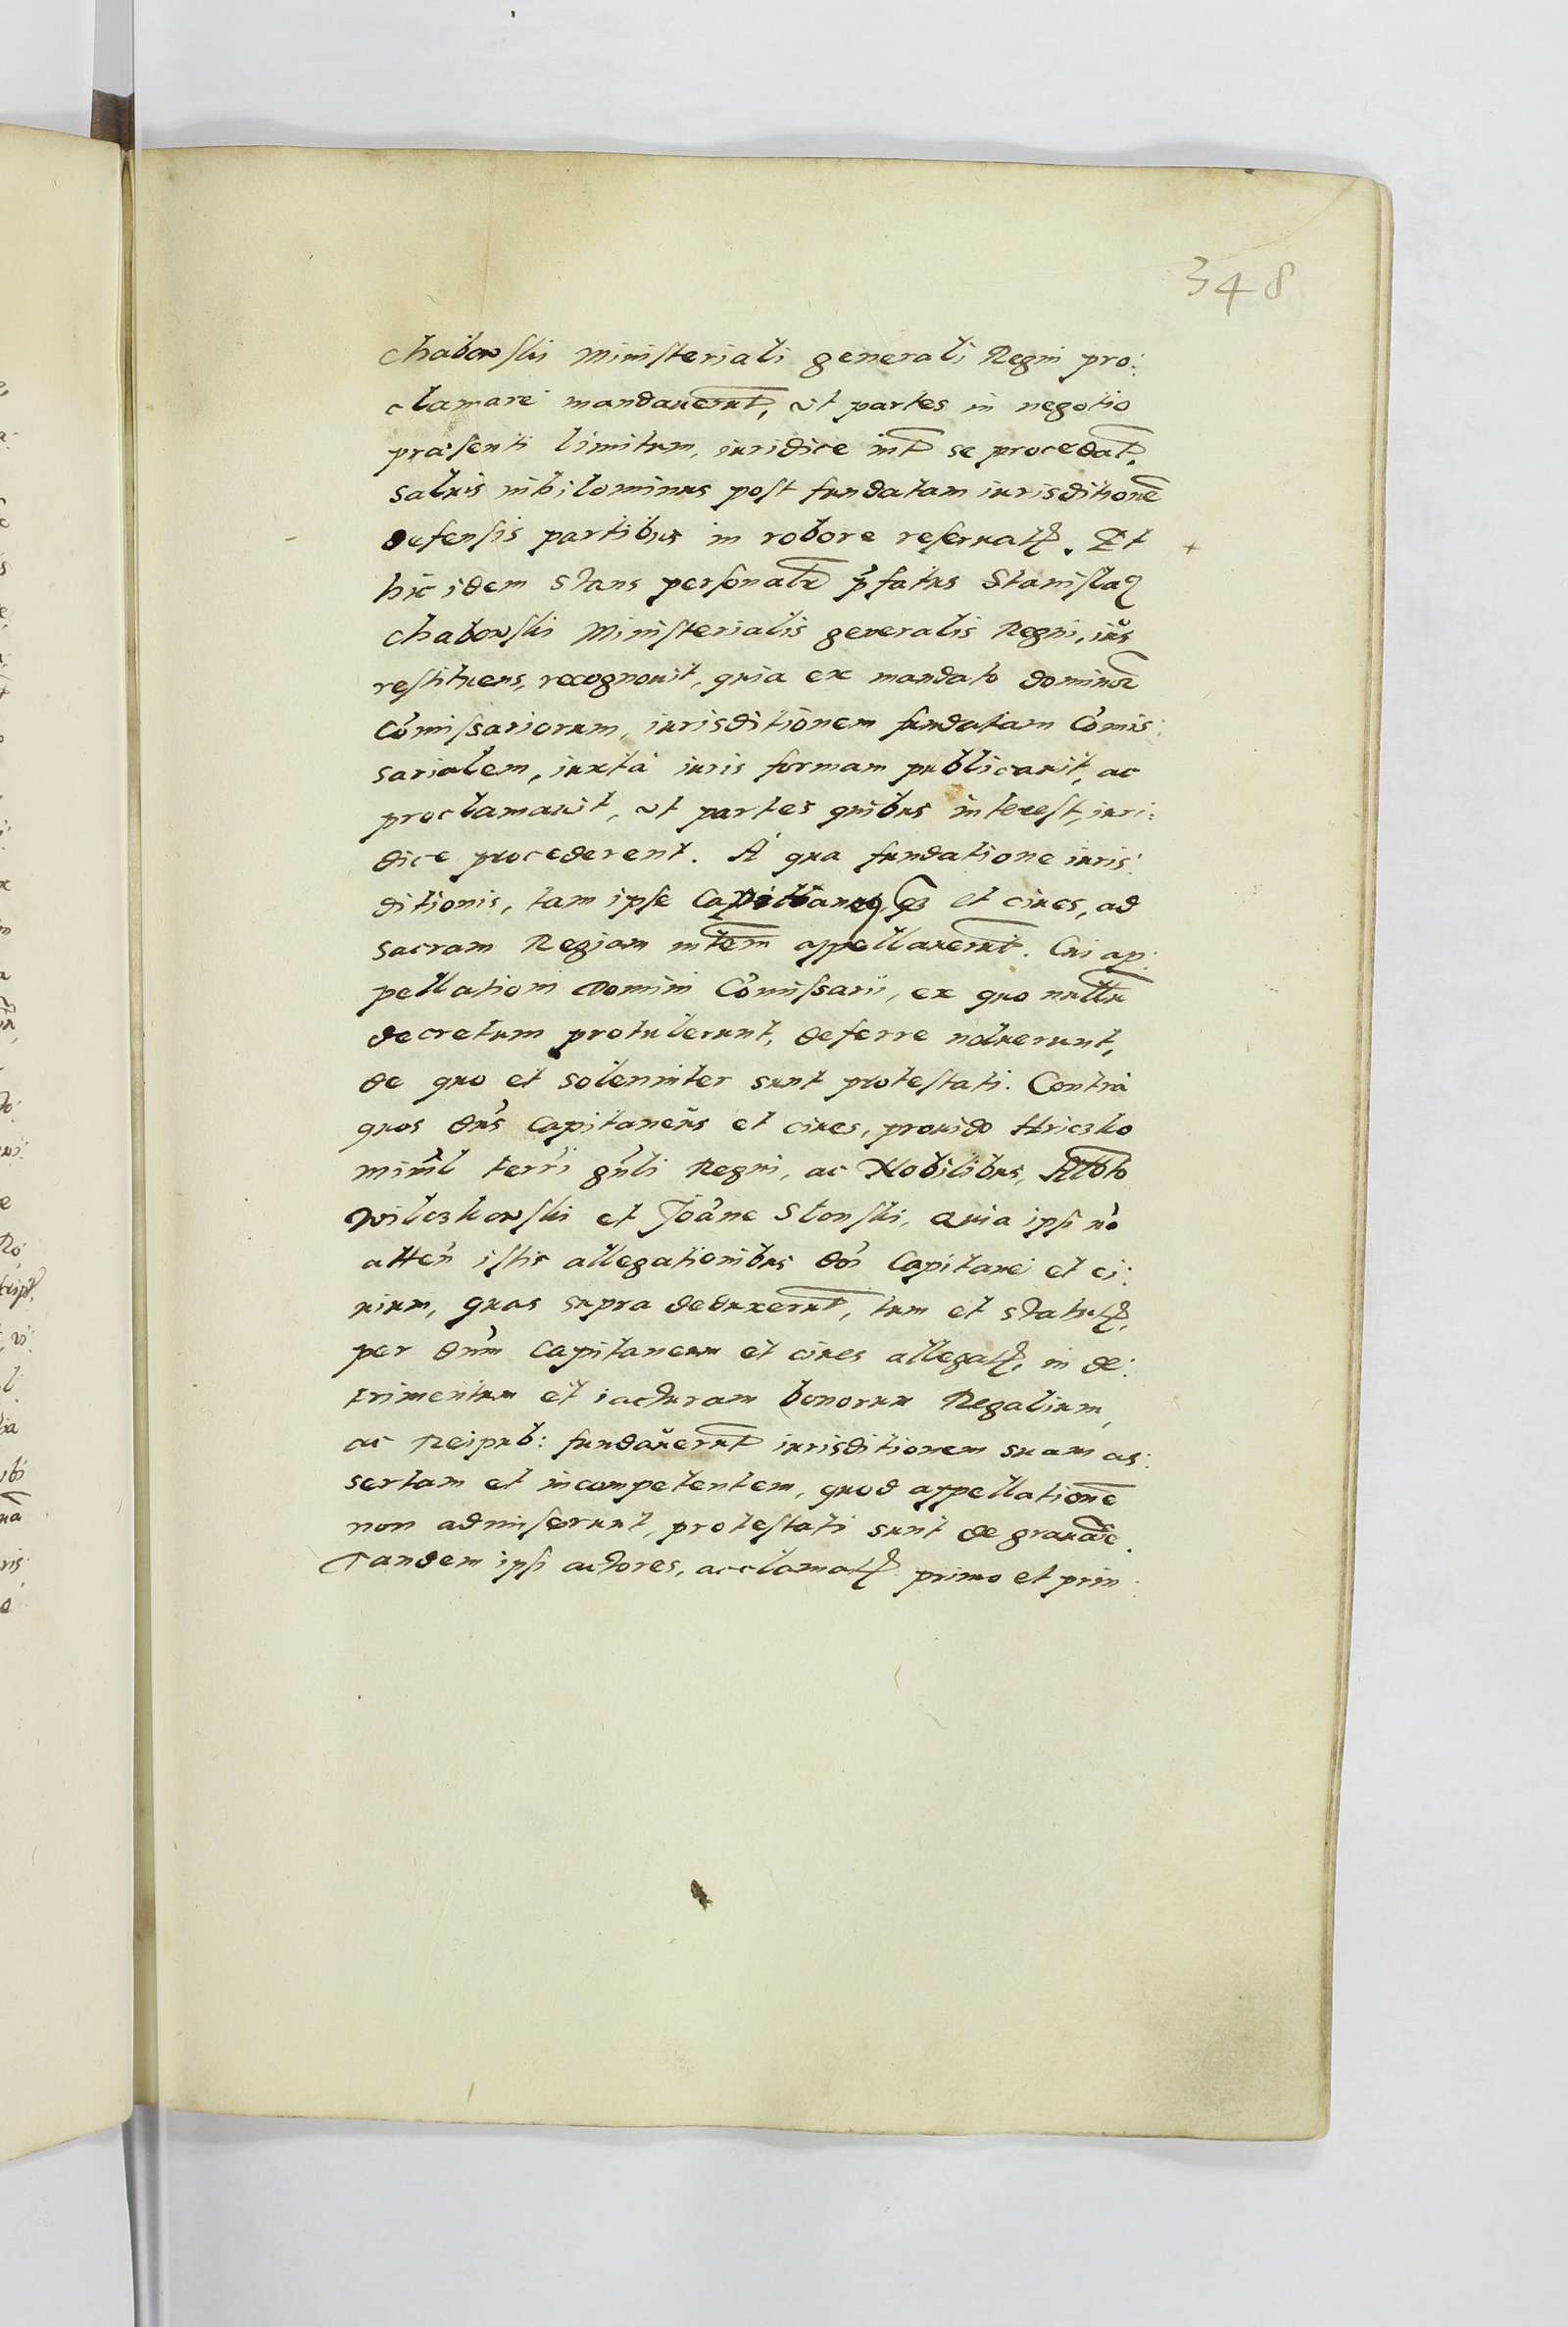 348
chabowski Ministeriali generali Regni pro:
clamare mandauerūt, ut partes in negotio
præsenti limitum, iuridice int̃ se procedāt,
saluis nihilominus post fundatam iurisditionē
defensis partibus in robore reseruatꝭ. Et +
hic idem stans personalr̃ p̃fatus Stanislaꝰ
chabowski Ministerialis generalis Regni, iũs
restituens, recognouit, quia ex mandato dominoꝝ
Cõmissariorum, iurisditionem fundatam Cõmis:
sarialem, iuxtà iuris formam publicauit, ac
proclamauit, ut partes quibus interest, iuri:
dice procederent. A' qua fundatione iuris:
ditionis, tam ipse Capitaneꝰ, qꝫ et ciues, ad
sacram Regiam mtem̄ appellauerūt. Cui ap:
pellationi Domini Cõmissarii, ex quo nullū
decretum protulerunt, deferre noluerunt,
de quo et solenniter sunt protestati. Contrà
quos dñs Capitaneus et ciues, prouido Hriczko
minĩl terr̃i gñli Regni, ac Nobilibus,
Wilczkowski et Joãne Slonski, quia ipsi nõ
atteñ istis allegationibus dñi Capitanei et ci:
uium, quas supra deduxerūt, tum et statutꝭ,
per dñm Capitaneum et ciues allegatꝭ, in de:
trimentum et iacturam bonorum Regalium,
ac Reipub: fundauerūt iurisditionem suam as:
sertam et incompetentem, quod appellationē
non admiserunt, protestati sunt de grauaīe.
Tandem ipsi actores, acclamatꝭ primo et prin: